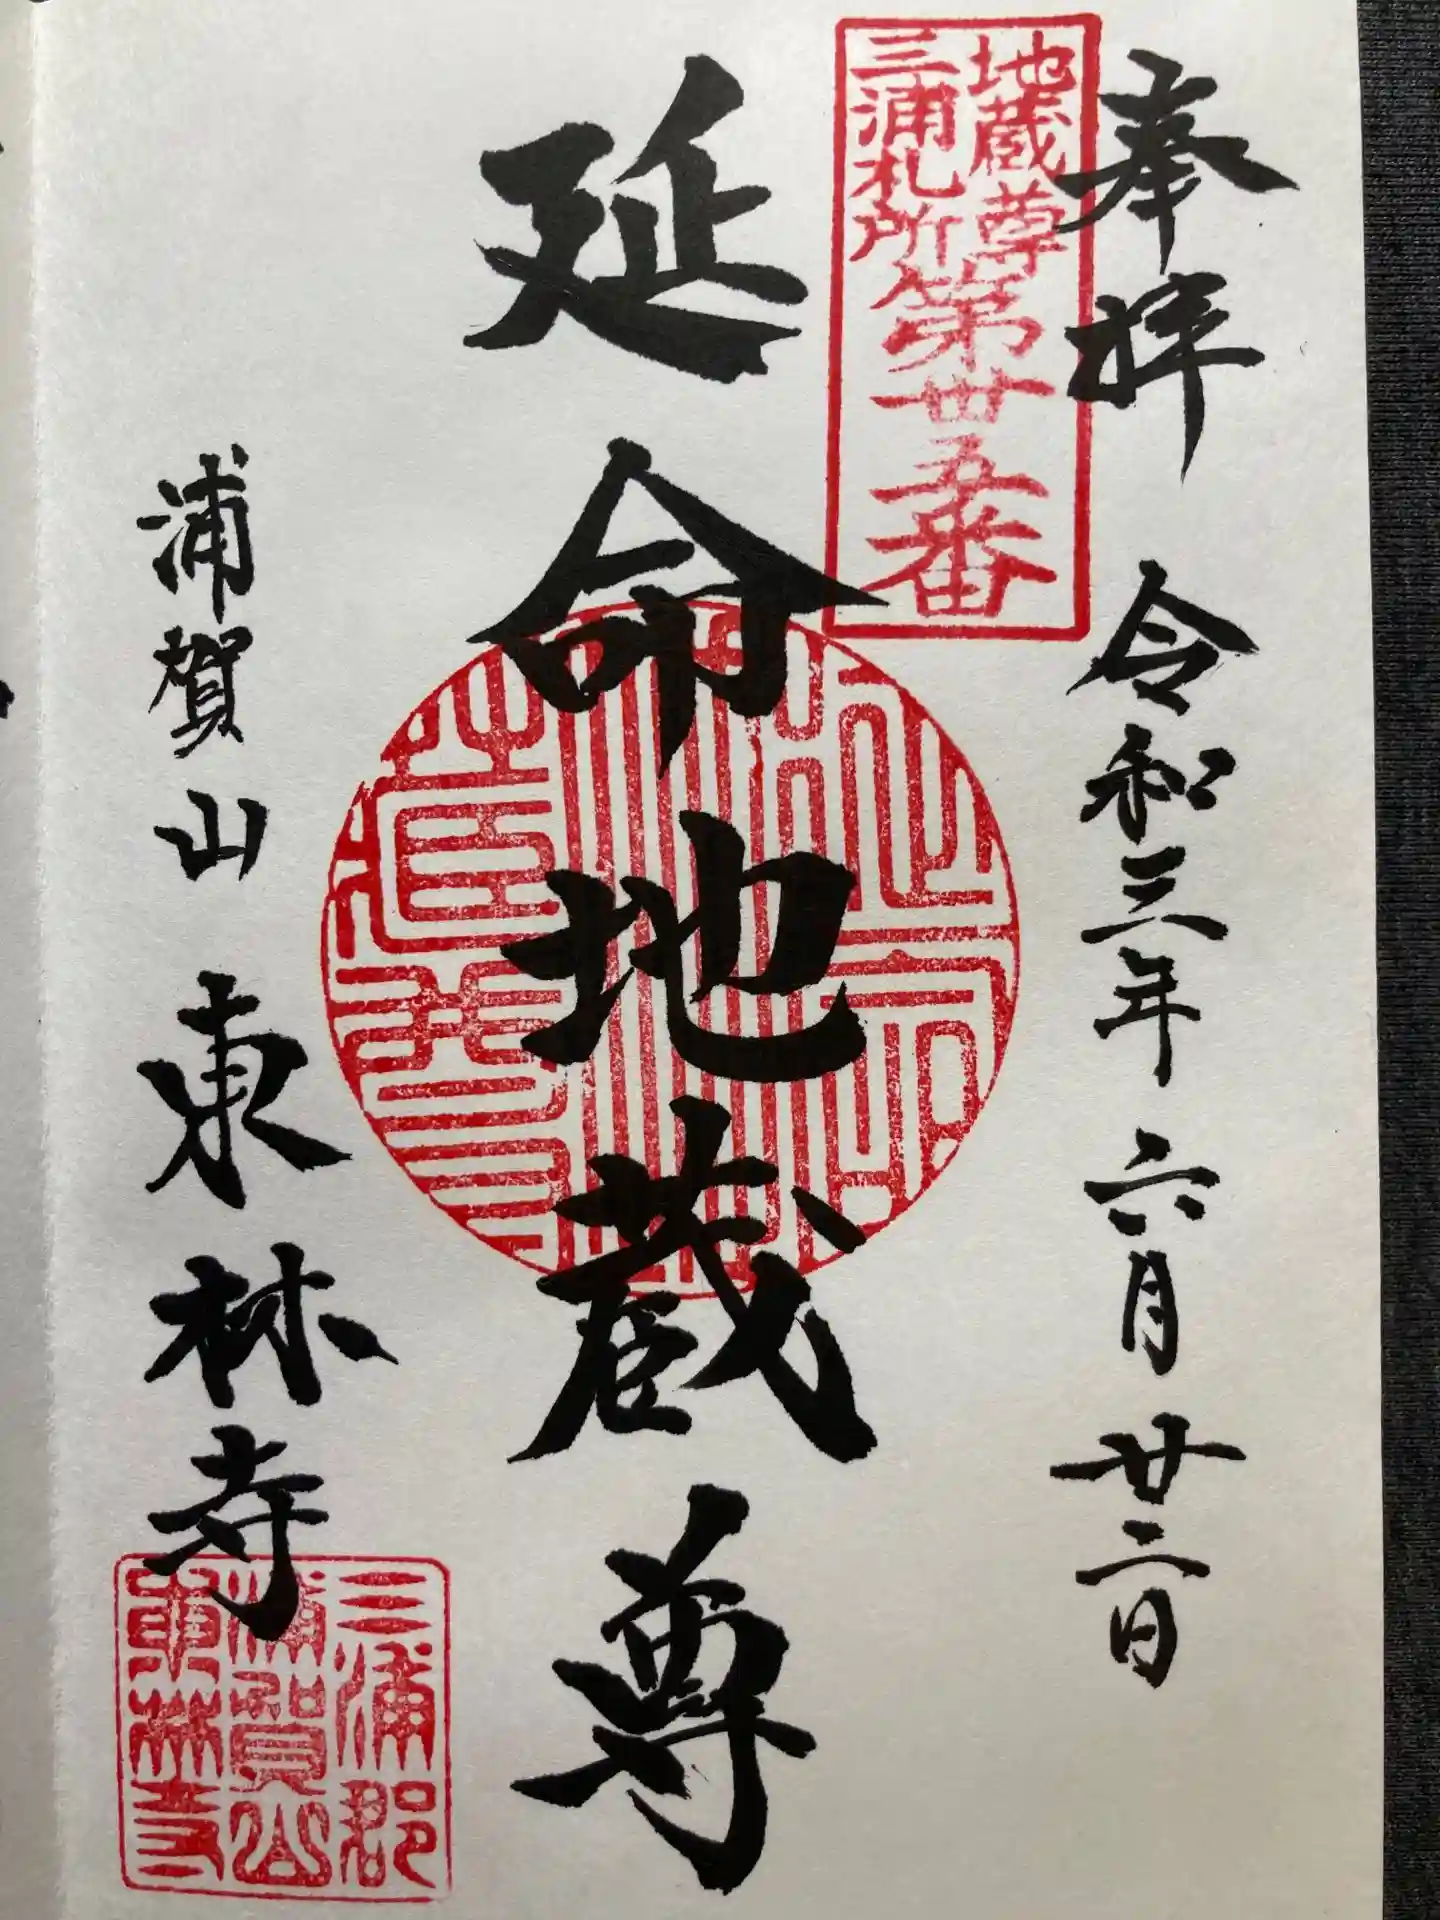 奉拝 令和三年 六月 廿二日
地蔵尊
三浦札所
第卅五番
延命地蔵尊
浦賀山 東林寺
三浦郡
浦賀山
東林寺